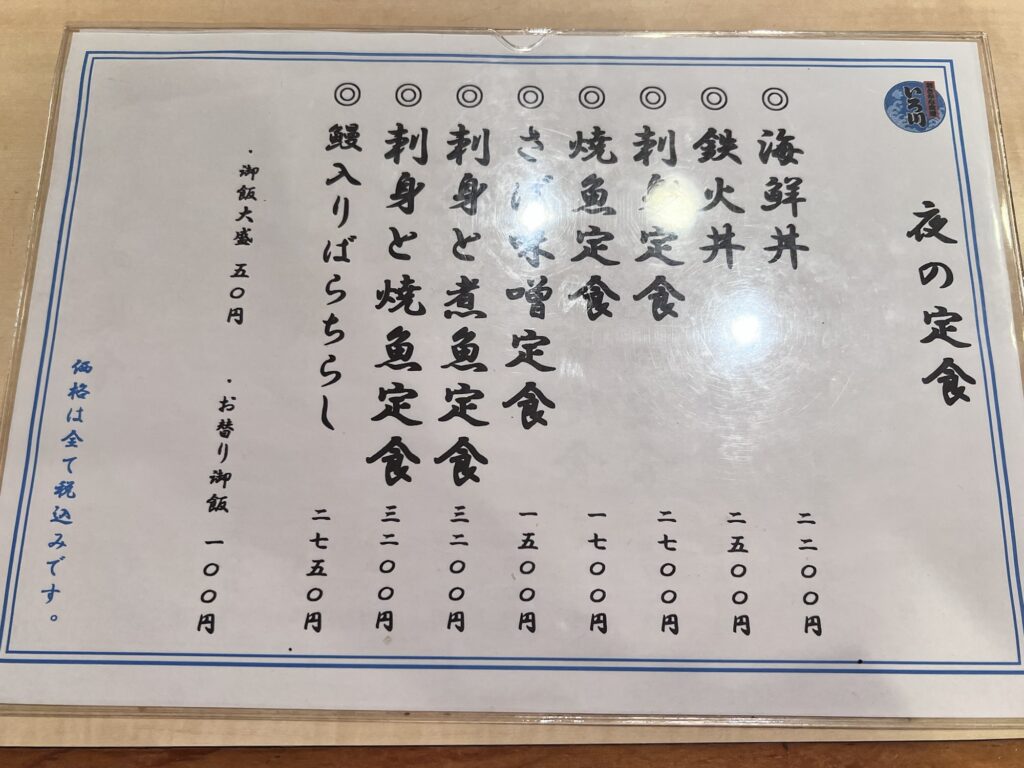 いろ川
夜の定食
◎海鮮丼 二二〇〇円
◎鉄火丼 二五〇〇円
◎刺身定食 二七〇〇円
◎焼魚定食 一七〇〇円
◎さば味噌定食 一五〇〇円
◎刺身と煮魚定食 三二〇〇円
◎刺身と焼魚定食 三二〇〇円
◎鰻入りばらちらし 二七五〇円
・御飯大盛 五〇円 ・お替り御飯 一〇〇円
価格は全て税込みです。